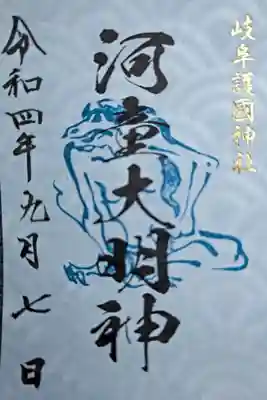 岐阜護國神社
河童大明神
令和四年九月七日